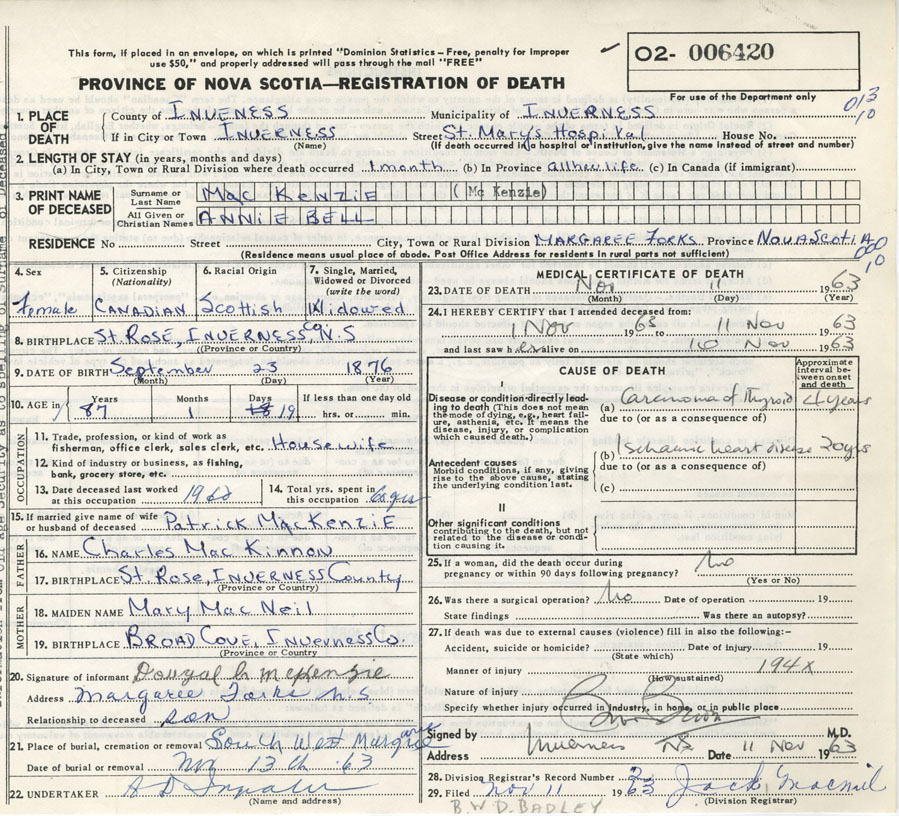 This form, if placed in an envelope, on which is printed "Dominion Statistics – Free, penalty for improper
use $50," and properly addressed will pass through the mail "FREE"
O2- 006420
PROVINCE OF NOVA SCOTIA—REGISTRATION OF DEATH
For use of the Department only
013
10
1. PLACE OF DEATH
County of INUENESS Municipality of INVERNESS
If in City or Town INVERNESS Street St. Mary's Hospital House No.
(Name) (If death occurred in a hospital or institution, give the name instead of street and number)
2. LENGTH OF STAY (in years, months and days)
(a) In City, Town or Rural Division where death occurred 1 month (b) In Province all her life (c) In Canada (if immigrant)
3. PRINT NAME OF DECEASED
Surname or Last Name MacKENZIE (McKenzie)
All Given or Christian Names ANNIE BELL
RESIDENCE No. Street City, Town or Rural Division MARGAREE FORKS Province NOVA SCOTIA
(Residence means usual place of abode. Post Office Address for residents in rural parts not sufficient)
000
10
4. Sex
Female
5. Citizenship
(Nationality)
CANADIAN
6. Racial Origin
Scottish
7. Single, Married, Widowed or Divorced
(write the word)
Widowed
8. BIRTHPLACE St. ROSE, INVERNESS Co, N.S
(Province or Country)
9. DATE OF BIRTH September 23 1876
(Month) (Day) (Year)
10. AGE in Years Months Days If less than one day old
87 1 19 hrs. or min.
OCCUPATION
11. Trade, profession, or kind of work as
fisherman, office clerk, sales clerk, etc. Housewife
12. Kind of industry or business, as fishing,
bank, grocery store, etc.
13. Date deceased last worked
at this occupation
14. Total yrs. spent in
this occupation
15. If married give name of wife
or husband of deceased Patrick MacKENZIE
FATHER
16. NAME Charles MacKinnon
17. BIRTHPLACE St. Rose, INVERNESS County
(Province or Country)
MOTHER
18. MAIDEN NAME Mary MacNeil
19. BIRTHPLACE BROAD COVE, INVERNESS Co.
(Province or Country)
20. Signature of informant McKenzie
Address Margaree Forks N.S
Relationship to deceased son
21. Place of burial, cremation or removal South West Margaree
Date of burial or removal Nov 13th 63
22. UNDERTAKER
(Name and address)
MEDICAL CERTIFICATE OF DEATH
23. DATE OF DEATH Nov 11 1963
(Month) (Day) (Year)
24. I HEREBY CERTIFY that I attended deceased from:
1 Nov 1963 to 11 Nov 63
and last saw her alive on 10 Nov 1963
CAUSE OF DEATH
Approximate interval between onset and death
I
Disease or condition directly leading to death (This does not
mean the mode of dying, e.g., heart failure, asthenia, etc. It means the
disease, injury, or complication
which caused death.)
(a) Carcinoma of Thyroid years
due to (or as a consequence of)
(b) Ischaemic heart disease 20 yrs
due to (or as a consequence of)
(c)
Antecedent causes
Morbid conditions, if any, giving
rise to the above cause, stating
the underlying condition last.
II
Other significant conditions
contributing to the death, but not
related to the disease or condition causing it.
25. If a woman, did the death occur during
pregnancy or within 90 days following pregnancy? No
(Yes or No)
26. Was there a surgical operation? No Date of operation 19
State findings Was there an autopsy?
27. If death was due to external causes (violence) fill in also the following:–
Accident, suicide or homicide? Date of injury 19
(State which)
Manner of injury 194X
(How sustained)
Nature of injury
Specify whether injury occurred in industry, in home, or in public place
Signed by M.D.
Address Inverness NS Date 11 Nov 1963
28. Division Registrar's Record Number
29. Filed Nov 11 1963 Jack Macneil
(Division Registrar)
B.W.D. BADLEY